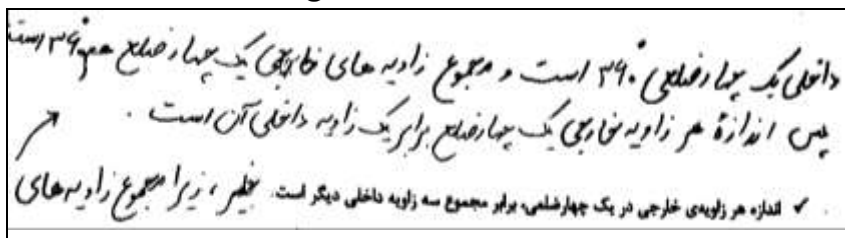 داخلی یک چهارضلعی ۳۶۰° است و مجموع زاویه های خارجی یک چهارضلع هم ۳۶۰° است
پس اندازهٔ هر زاویه خارجی یک چهارضلع برابر یک زاویه داخلی آن است .
✓ اندازه هر زاویه‌ی خارجی در یک چهارضلعی، برابر مجموع سه زاویه داخلی دیگر است. خیر، زیرا مجموع زاویه های